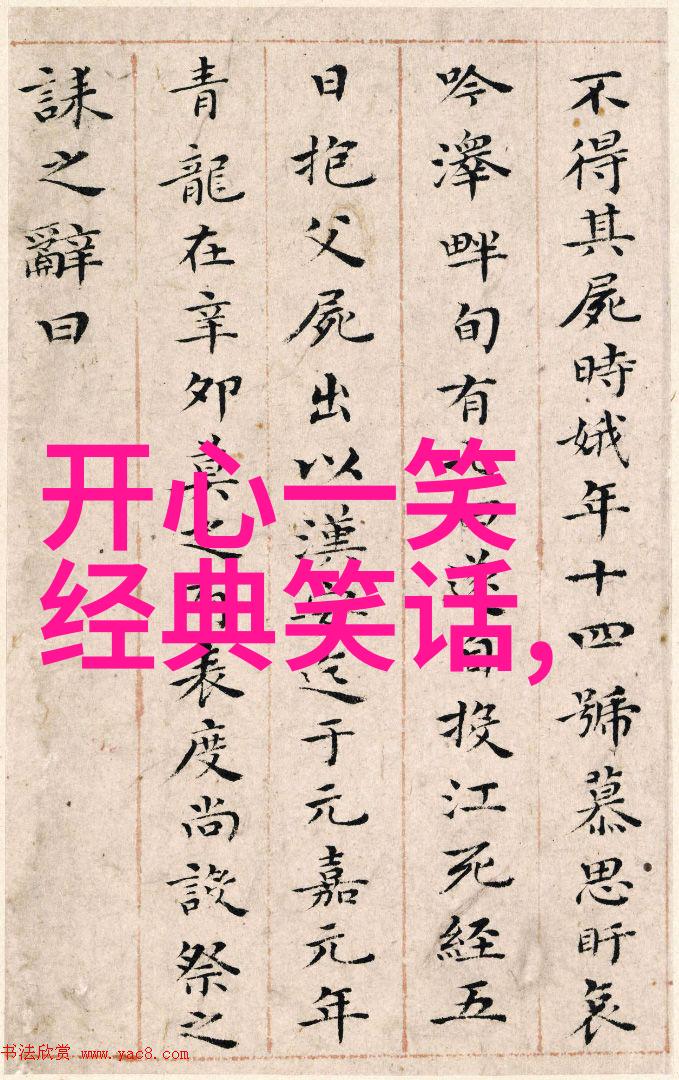 不得其屍時娥年十四號慕思盱哀
吟澤畔旬有七日遂自投江死經五
日抱父屍出以漢安迄于元嘉元年
青龍在辛卯莫之有表度尚設祭之
誄之辭曰
开心一笑
经典笑话,
书法欣赏 www.yac8.com